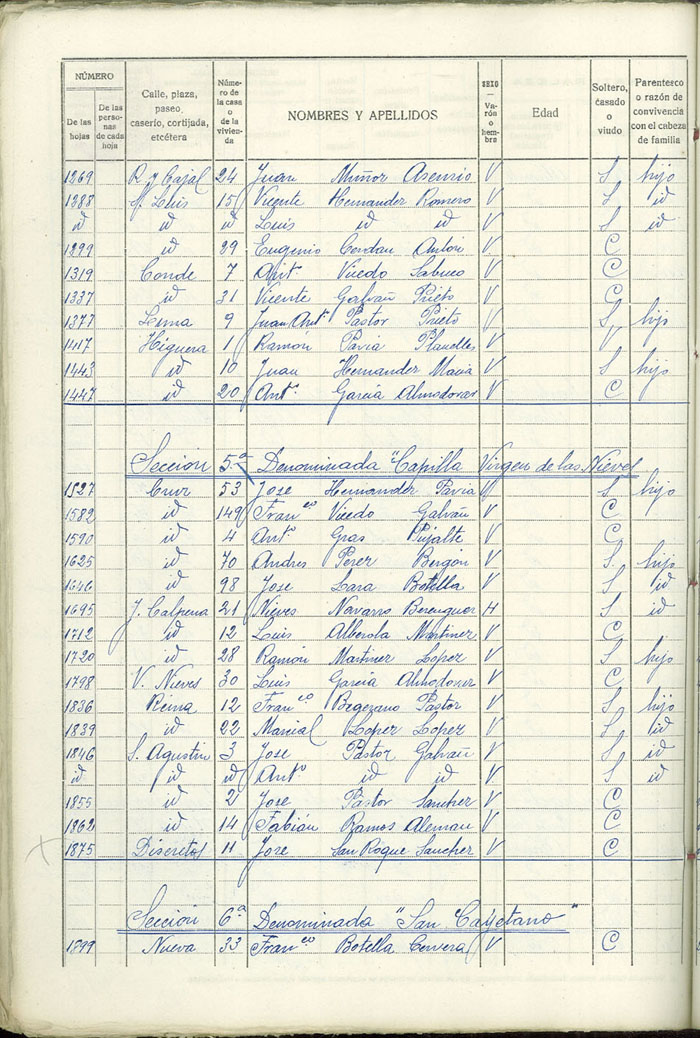 NÚMERO
De las hojas
De las personas de cada hoja
Calle, plaza, paseo caserío, cortijada, etcétera
Número de la casa o de la vivienda
NOMBRES Y APELLIDOS
SEXO — Varón o hembra
Edad
Soltero, casado o viudo
Parentesco o razón de convivencia con el cabeza de familia
1269 R y Cajal 24 Juan Muñoz Asensio V S hijo
1288 S. Luis 15 Vicente Hernandez Romero V S id
id id id Luis id id V S id
1299 id 29 Eugenio Cerdan Anton V C
1319 Conde 7 Antº. Vicedo Sabuco V C
1337 id 31 Vicente Galvañ Prieto V C
1377 Luna 9 Juan Antº. Pastor Prieto V S hijo
1417 Higuera 1 Ramon Pavia V V
1443 id 10 Juan Hernandez Maciá V S hijo
1447 id 20 Antº. Garcia Almodovar V C
Seccion 5ª Denominada "Capilla Virgen de las Nieves
1527 Cruz 53 Jose Hernandez Pavia V S hijo
1582 id 149 Franco Vicedo Galvañ V C
1590 id 4 Antº. Gras Pujalte V C
1625 id 70 Andres Perez V S hijo
1646 id 98 Jose Lara Botella V S id
1695 J. Calpena 21 Nieves Navarro Berenguer H S id
1712 id 12 Luis Alberola Martinez V C
1720 id 28 Ramón Martinez Lopez V S hijo
1798 V. Nieves 30 Luis Garcia Almodovar V C
1836 Reina 12 Franco Pastor V S hijo
1839 id 22 Marcial Lopez Lopez V S id
1846 S. Agustin 3 Jose Pastor Galvañ V S id
id id id Antº id id V S id
1855 id 2 Jose Pastor Sanchez V C
1862 id 14 Fabián Ramos Aleman V C
1875 Discretos 11 Jose San Roque Sanchez V C
Sección 6ª Denominada "San Cayetano"
1899 Nueva 33 Franco Botella Cervera V C